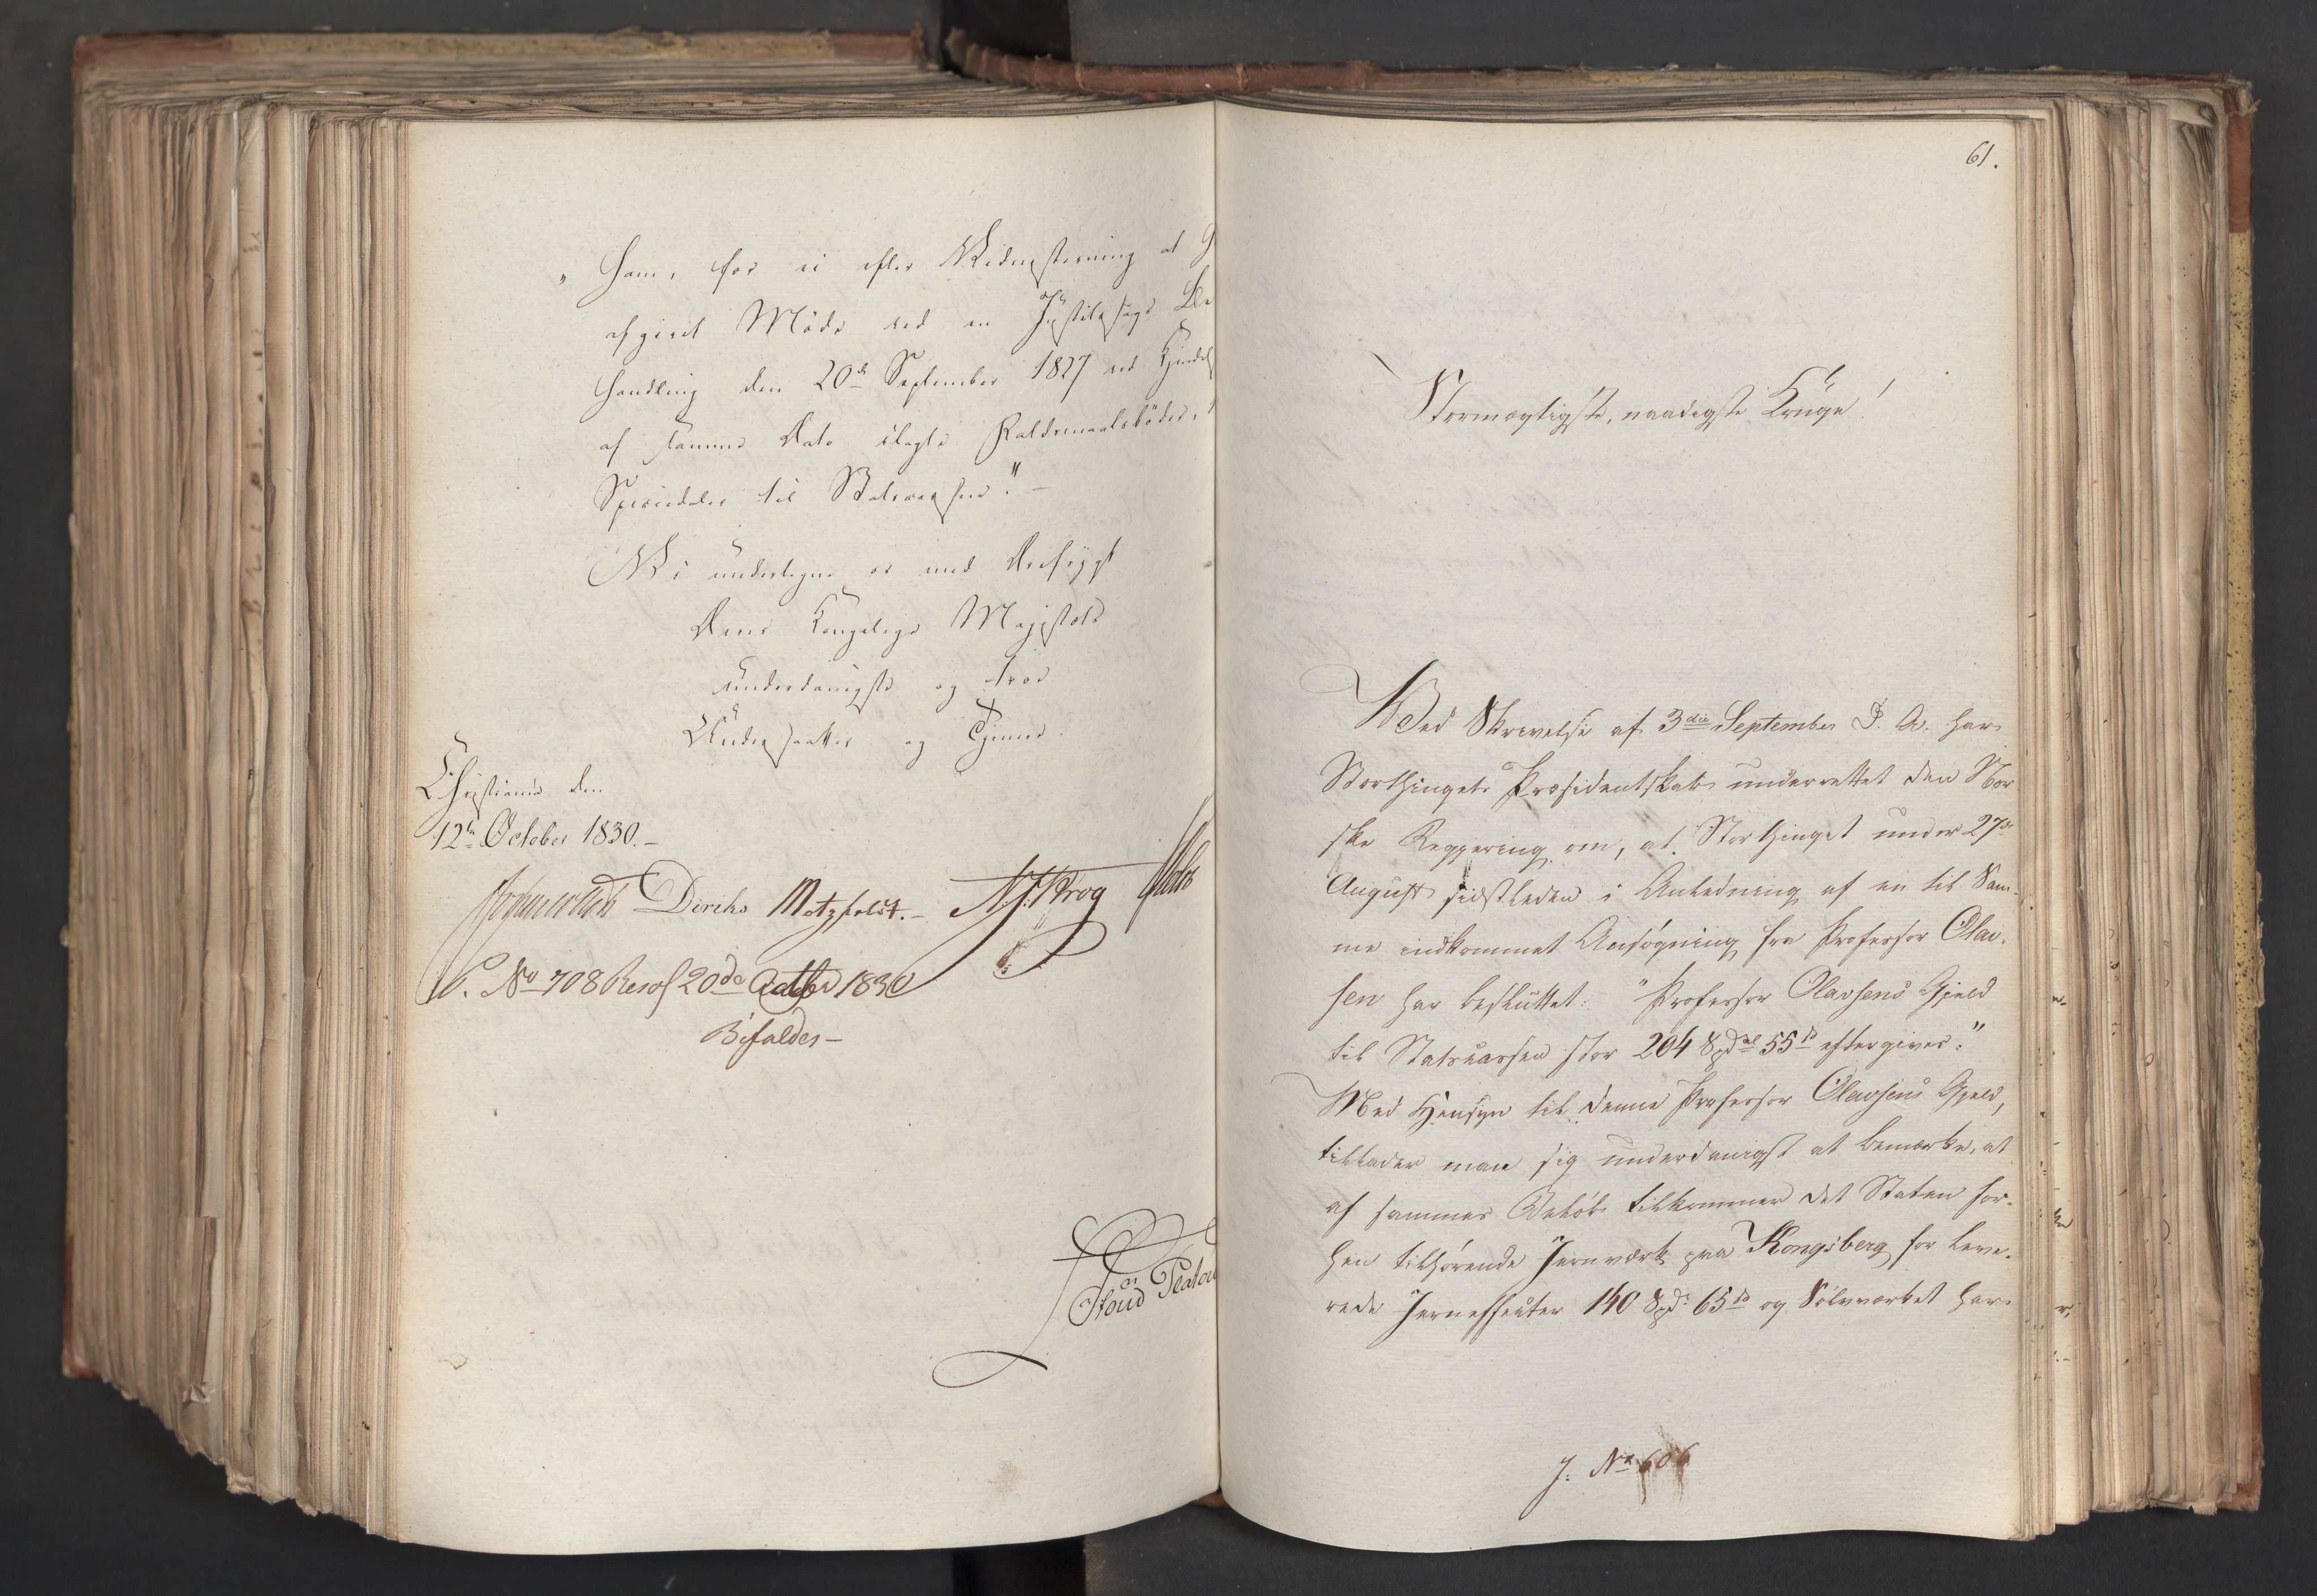 „ham, for ei efter Vidnestevning at
afgivet Møde ved en Justitssags Be
handling den 20de September 1827 ved Kjendel
af samme Dato ilagte Faldsmaalsbøder,
Speciedaler til Statscassen." –
Vi undertegne os med Dybsygt
Deres Kongelige Majestæts
underdanigste og troe
Undersaatter og Tjenere.
Christiania den
12te October 1830. –
Diriks Motzfeldt. – N. J. Krog
N. No 708 Resol 20de Octbr 1830
Bifaldes –
Stoud Platou
61.
Stormægtigste, naadigste Konge!
Ved Skrivelse af 3die September d. A. har
Storthingets Præsidentskab underrettet den Nor
ske Regjering om, at Storthinget under 27de
August sidstleden i Anledning af en til Sam-
me indkommet Ansøgning fra Professor Olav-
sen har besluttet: "Professor Olavsens Gjeld
til Statscassen stor 204 Spdlr 55 s eftergives."
Med Hensyn til denne Professor Olavsens Gjeld,
tillader man sig underdanigst at bemærke, at
af sammes Beløb tilkommer det Staten for-
hen tilhørende Jernværk paa Kongsberg for leve-
rede Jerneffecter 140 Spd: 65 s og Sølvværket har
J: No 606